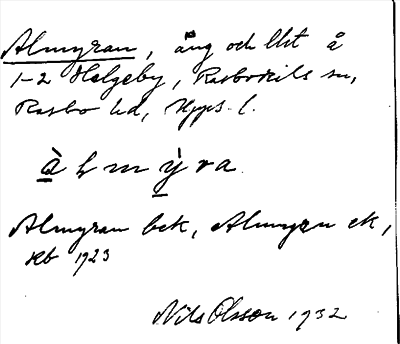 Almyran, äng och lht å
1-2 Helgeby, Rasbokils sn,
Rasbo hd, Upps. l.
à l m ỳ r a
Almyran bek, Almyran ek,
kb 1923
Nils Olsson 1932